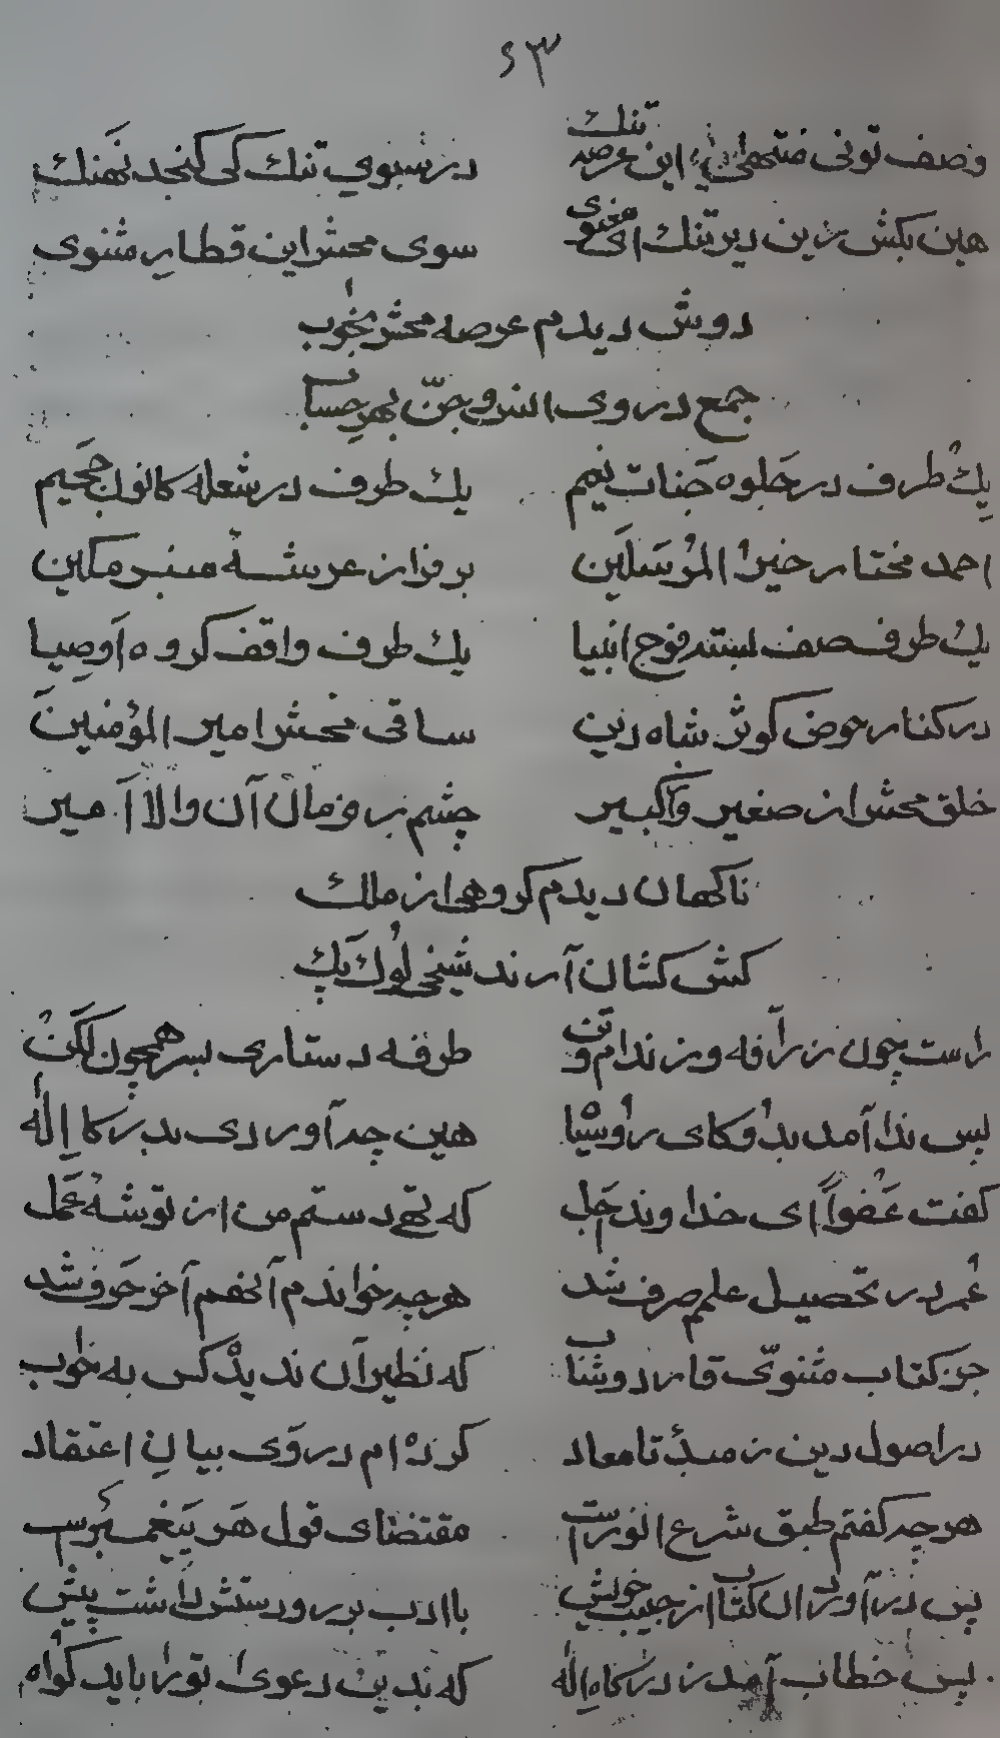 ۶۳
وصف تونی منتهی این عرصه تنك در سبوی تنك کی کنجد نهنك
هین بکش زین دیر تنك ای مغنوی سوی محشر این قطار مثنوی
دوش دیدم عرصه محشر بخواب
جمع در وی انس و جن بهر حساب
یك طرف در جلوه جنات نعیم یك طرف در شعله کانون جحیم
احمد مختار خیر المرسلین بر فراز عرشه منبر مکین
یك طرف صف بسته فوج انبیا یك طرف واقف کروه اوصیا
در کنار حوض کوثر شاه دین ساقی محشر امیر المؤمنین
خلق محشر از صغیر و اکبیر چشم بر فرمان آن والا امیر
ناکهان دیدم کروهی از ملك
کش کشان آرند شیخی لوك پك
راست چون زرافه وزندام و تن طرفه دستاری بسر همچون لکن
پس ندا آمد بدو کای روسیا هین چه آوردی بدرکاه اله
کفت عفوا ای خداوند اجل که تهی دستم من از توشه عمل
عمر در تحصیل علمم صرف شد هر چه خواندم آنهم آخر حرف شد
جز کتاب مثنوی قارد و شناب که نظیر آن ندید کس به خواب
در اصول دین ز مبدأ تا معاد کرده ام در وی بیان اعتقاد
هر چه کفتم طبق شرع انور است مقتضای قول هر پیغمبر است
پس در آورد آن کتاب از جیب خویش با ادب بر رو دستش داشت پیش
پس خطاب آمد ز درکاه اله که بدین دعوی تو را باید کواه